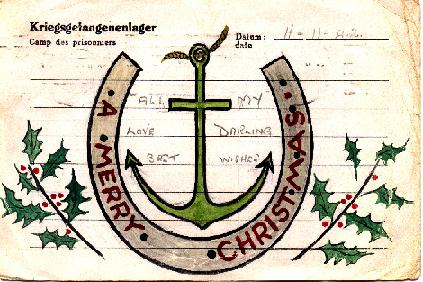 Kriegsgefangenenlager
Camp des prisonniers
Datum: 11-11-42.
date
ALL MY
LOVE DARLING
BEST WISHES
A MERRY CHRISTMAS